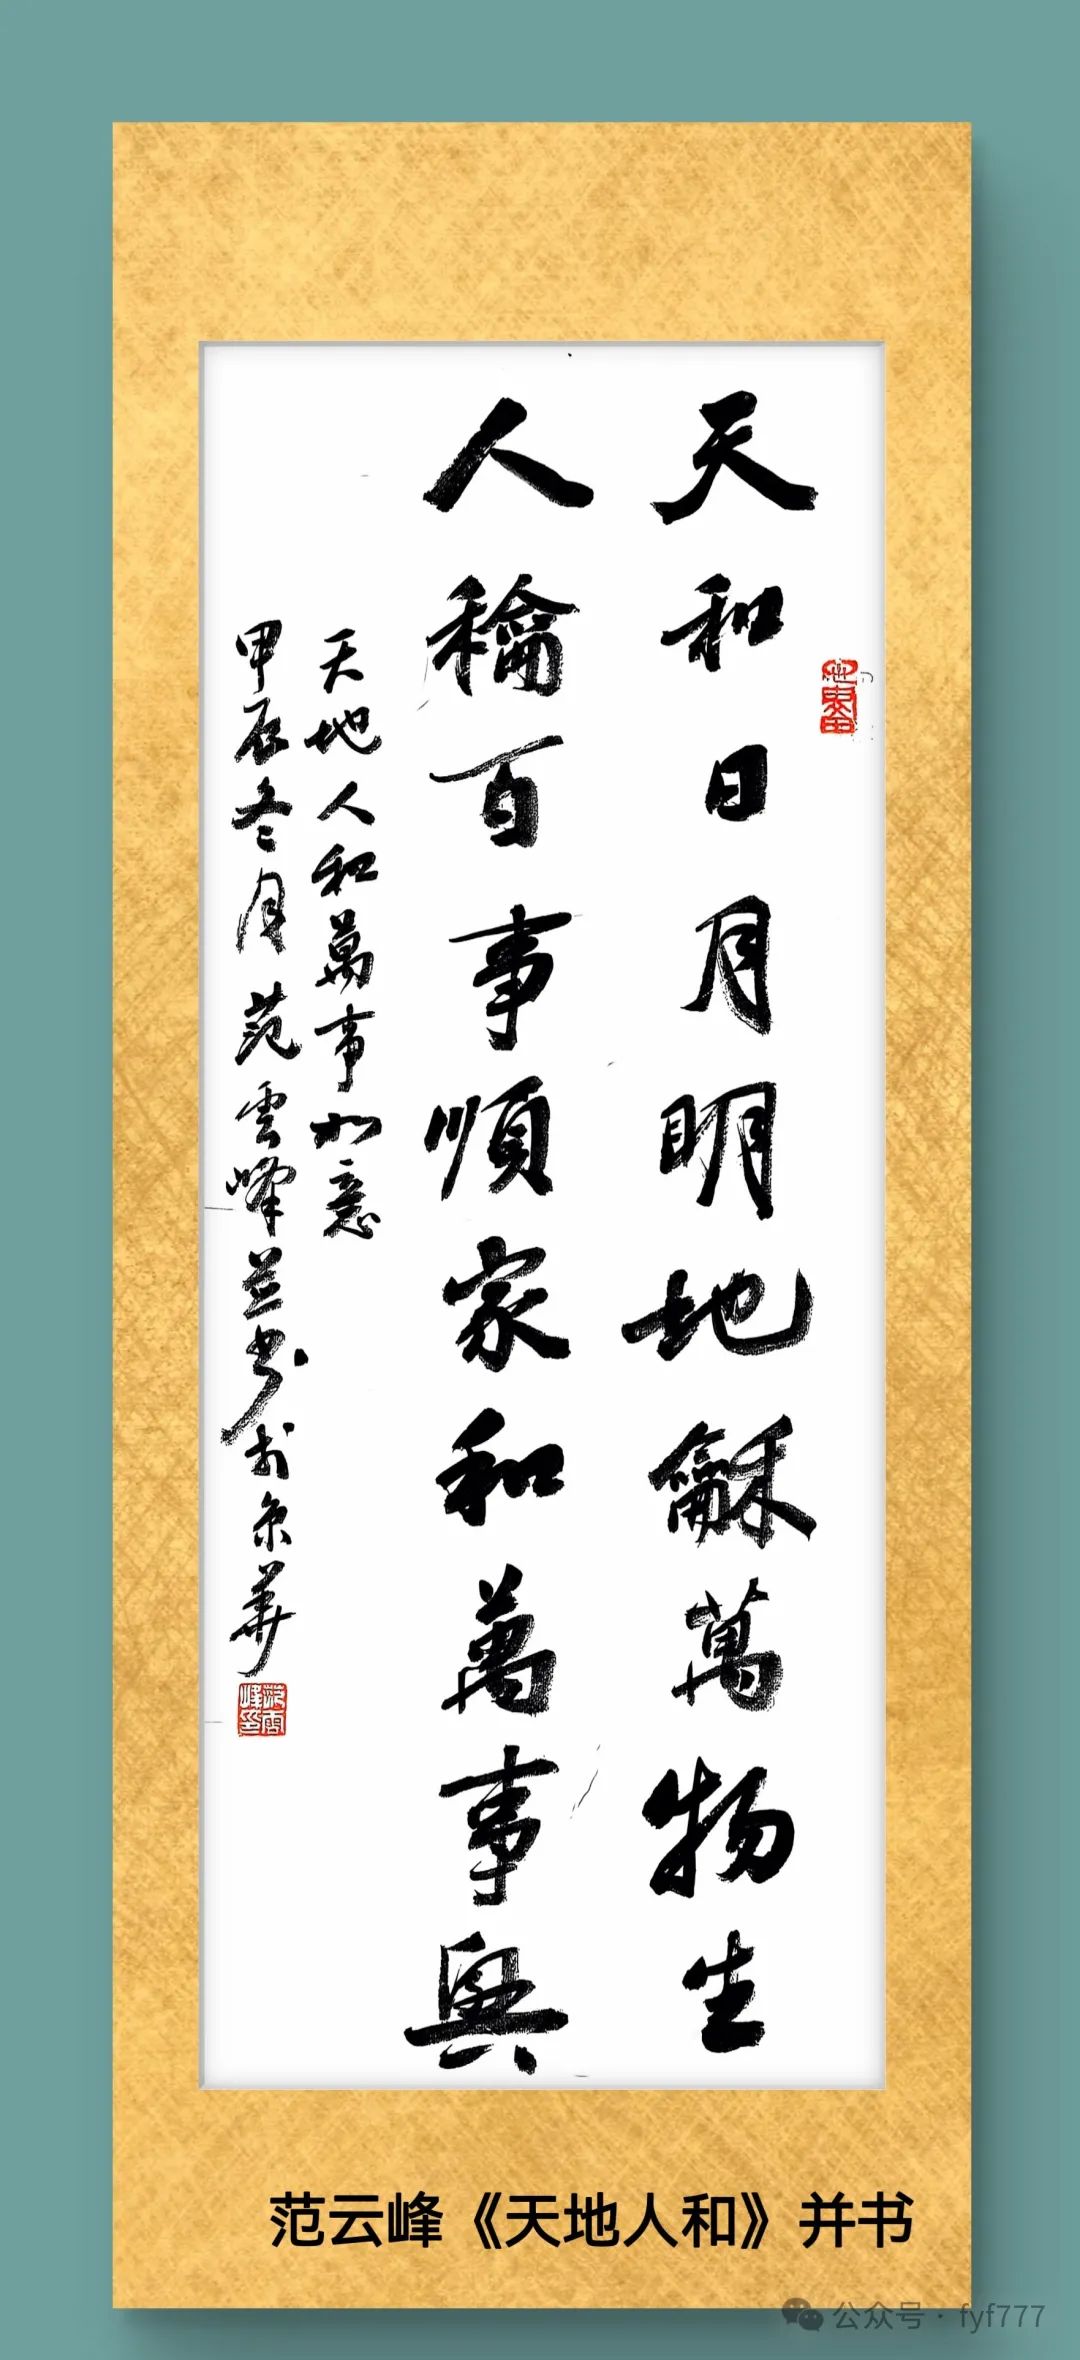 天和日月明地龢萬物生
人龢百事順家和萬事興
天地人和萬事如意
甲辰冬月范雲峰並書於京華
范雲峰印
范云峰《天地人和》并书
公众号 · fyf777